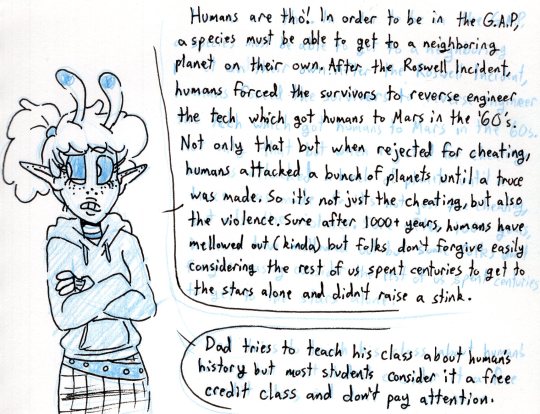 Humans are tho! In order to be in the G.A.P,
a species must be able to get to a neighboring
planet on their own. After the Roswell Incident,
humans forced the survivors to reverse engineer
the tech which got humans to Mars in the '60's.
Not only that but when rejected for cheating,
humans attacked a bunch of planets until a truce
was made. So it's not just the cheating, but also
the violence. Sure after 1000+ years, humans have
mellowed out (kinda) but folks don't forgive easily
considering the rest of us spent centuries to get to
the stars alone and didn't raise a stink.
Dad tries to teach his class about human's
history but most students consider it a free
credit class and don't pay attention.